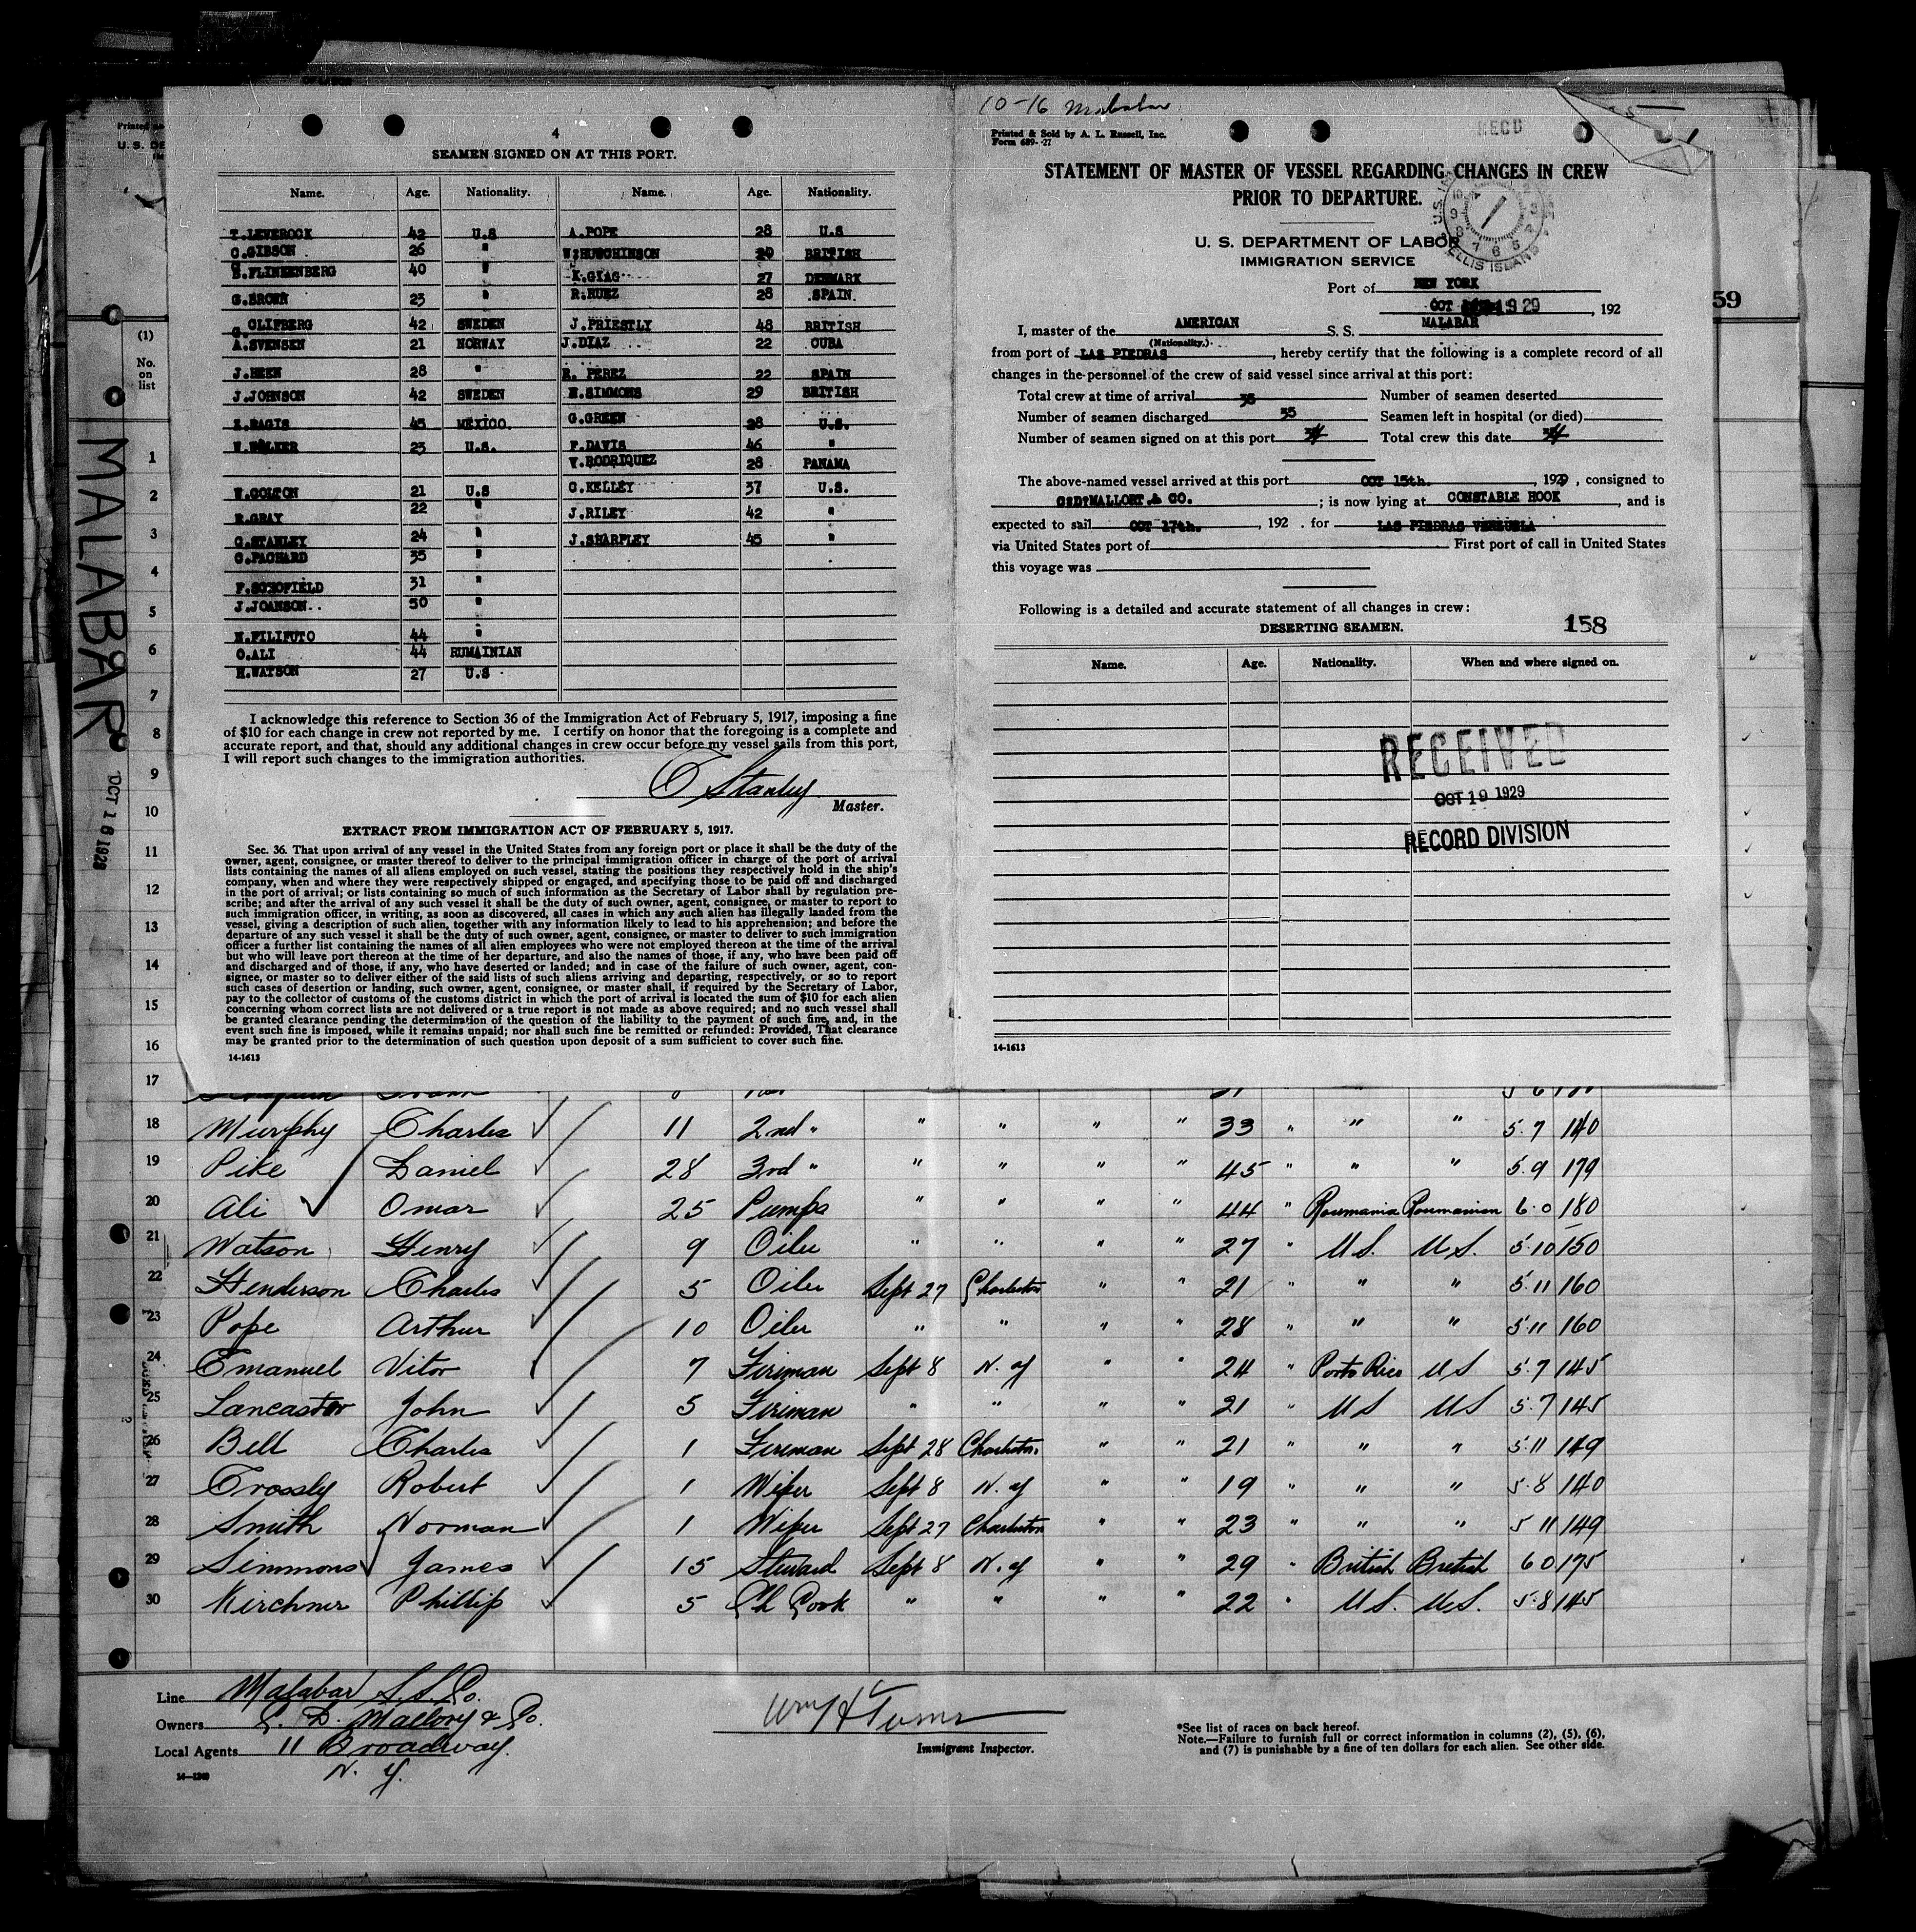 4
SEAMEN SIGNED ON AT THIS PORT.
Name. Age. Nationality. Name. Age. Nationality.
T.LEVEROCK 42 U.S A.POPE 28 U.S
C.GIBSON 26 " W.HUTCHINSON BRITISH
FLINKENBERG 40 " K.GIAG 27 DENMARK
G.BROWN 23 " R.RUEZ 28 SPAIN.
CLIFBERG 42 SWEDEN J.PRIESTLY 48 BRITISH
A.SVENSEN 21 NORWAY J.DIAZ 22 CUBA
J.HEEN 28 " R. PEREZ 22 SPAIN
J.JOHNSON 42 SWEDEN SIMMONS 29 BRITISH
RAGIS 45 MEXICO. G.GREEN 28 U.S.
W.WALKER 23 U.S. F.DAVIS 46 "
V.RODRIQUEZ 28 PANAMA
W.COLTON 21 U.S C.KELLEY 37 U.S.
R.GRAY 22 " J.RILEY 42 "
C.STANLEY 24 " J.SHARPLEY 45 "
C.PACHARD 35 "
F.SCHOFIELD 31 "
J.JOANSON.. 50 "
N.FILIFUTO 44 "
O.ALI 44 RUMAINIAN
H.WATSON 27 U.S
I acknowledge this reference to Section 36 of the Immigration Act of February 5, 1917, imposing a fine
of $10 for each change in crew not reported by me. I certify on honor that the foregoing is a complete and
accurate report, and that, should any additional changes in crew occur before my vessel sails from this port,
I will report such changes to the immigration authorities.
C Stanley
Master.
EXTRACT FROM IMMIGRATION ACT OF FEBRUARY 5, 1917.
Sec. 36. That upon arrival of any vessel in the United States from any foreign port or place it shall be the duty of the
owner, agent, consignee, or master thereof to deliver to the principal immigration officer in charge of the port of arrival
lists containing the names of all aliens employed on such vessel, stating the positions they respectively hold in the ship's
company, when and where they were respectively shipped or engaged, and specifying those to be paid off and discharged
in the port of arrival; or lists containing so much of such information as the Secretary of Labor shall by regulation pre-
scribe; and after the arrival of any such vessel it shall be the duty of such owner, agent, consignee, or master to report to
such immigration officer, in writing, as soon as discovered, all cases in which any such alien has illegally landed from the
vessel, giving a description of such alien, together with any information likely to lead to his apprehension; and before the
departure of any such vessel it shall be the duty of such owner, agent, consignee, or master to deliver to such immigration
officer a further list containing the names of all alien employees who were not employed thereon at the time of the arrival
but who will leave port thereon at the time of her departure, and also the names of those, if any, who have been paid off
and discharged and of those, if any, who have deserted or landed; and in case of the failure of such owner, agent, con-
signee, or master so to deliver either of the said lists of such aliens arriving and departing, respectively, or so to report
such cases of desertion or landing, such owner, agent, consignee, or master shall, if required by the Secretary of Labor,
pay to the collector of customs of the customs district in which the port of arrival is located the sum of $10 for each alien
concerning whom correct lists are not delivered or a true report is not made as above required; and no such vessel shall
be granted clearance pending the determination of the question of the liability to the payment of such fine, and, in the
event such fine is imposed, while it remains unpaid; nor shall such fine be remitted or refunded: Provided, That clearance
may be granted prior to the determination of such question upon deposit of a sum sufficient to cover such fine.
14-1613
10-16 Malabar
Printed & Sold by A. L. Russell, Inc.
Form 689- -27
RECD
STATEMENT OF MASTER OF VESSEL REGARDING CHANGES IN CREW
PRIOR TO DEPARTURE.
U. S. DEPARTMENT OF LABOR
IMMIGRATION SERVICE
ELLIS ISLAND
Port of NEW YORK
OCT 1929, 192
I, master of the AMERICAN S. S. MALABAR
(Nationality.)
from port of LAS PIEDRAS, hereby certify that the following is a complete record of all
changes in the personnel of the crew of said vessel since arrival at this port:
Total crew at time of arrival Number of seamen deserted
Number of seamen discharged 35 Seamen left in hospital (or died)
Number of seamen signed on at this port 34 Total crew this date 34
The above-named vessel arrived at this port OCT 15th. , 1929 , consigned to
C.D.MALLORY.& CO. ; is now lying at CONSTABLE HOOK , and is
expected to sail OCT 17th. , 192 . for LAS PIEDRAS VENZUELA
via United States port of First port of call in United States
this voyage was
Following is a detailed and accurate statement of all changes in crew:
DESERTING SEAMEN. 158
Name. Age. Nationality. When and where signed on.
RECEIVED
OCT 19 1929
RECORD DIVISION
14-1613
59
MALABAR
OCT 16 1929
(1)
No.
on
list
1
2
3
4
5
6
7
8
9
10
11
12
13
14
15
16
17
18 Murphy Charles 11 2nd " " " " " 33 " " " 5.7 140
19 Pike Daniel 28 3rd " " " " " 45 " " " 5.9 179
20 Ali Omar 25 Pumps " " " " 44 " Roumania Roumanian 6.0 180
21 Watson Henry 9 Oiler " " " " 27 " U.S. U.S. 5.10 150
22 Henderson Charles 5 Oiler Sept 27 Charleston " " 21 " " " 5.11 160
23 Pope Arthur 10 Oiler " " " " 28 " " " 5.11 160
24 Emanuel Vitor 7 Fireman Sept 8 N.Y " " 24 " Porto Rico US 5.7 145
25 Lancaster John 5 Fireman " " " " 21 " US US 5.7 145
26 Bell Charles 1 Fireman Sept 28 Charleston " " 21 " " " 5.11 149
27 Crossly Robert 1 Wiper Sept 8 N.Y " " 19 " " " 5.8 140
28 Smith Norman 1 Wiper Sept 27 Charleston " " 23 " " " 5 11 149
29 Simmons James 15 Steward Sept 8 N.Y " " 29 " British British 6 0 175
30 Kirchner Phillip 5 Ch Cook " " " " 22 " U.S. U.S. 5.8 145
Line Malabar S.S. Co.
Owners C. D. Mallory & Co.
Local Agents 11 Broadway.
N.Y.
14-1240
Immigrant Inspector.
*See list of races on back hereof.
Note.—Failure to furnish full or correct information in columns (2), (5), (6),
and (7) is punishable by a fine of ten dollars for each alien. See other side.